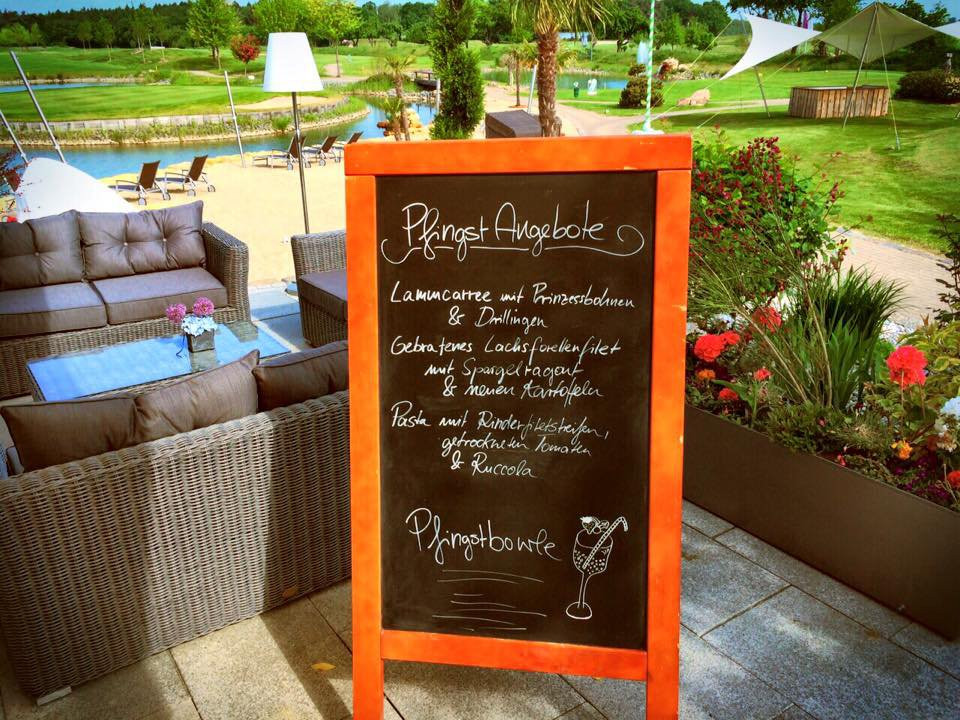 Pfingst Angebote
Lammcarree mit Prinzessbohnen
& Drillingen
Gebratenes Lachsforellenfilet
mit Spargelragout
& neuen Kartoffeln
Pasta mit Rinderfiletstreifen,
getrockneten Tomaten
& Ruccola
Pfingstbowle